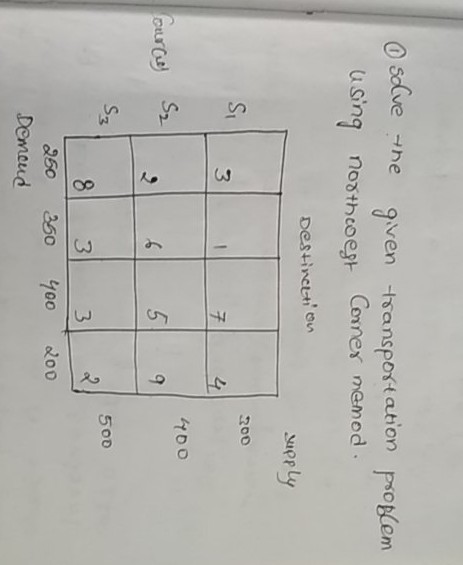 ① Solve the given transportation problem
using northwest Corner method.
Destination
Supply
S1 3 1 7 4 300
S2 2 6 5 9 400
S3 8 3 3 2 500
250 350 400 200
Demand